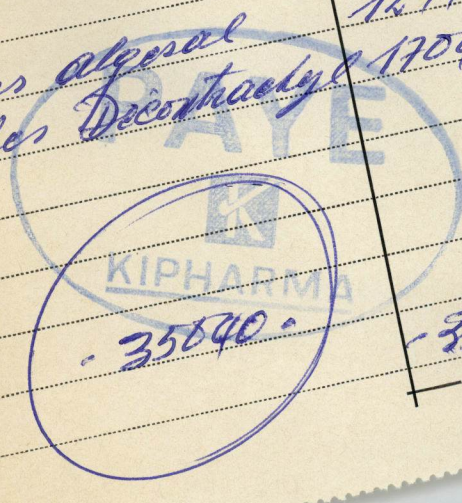 algesal
Décontractyl 170
PAYE
K
KIPHARMA
. 35640 .